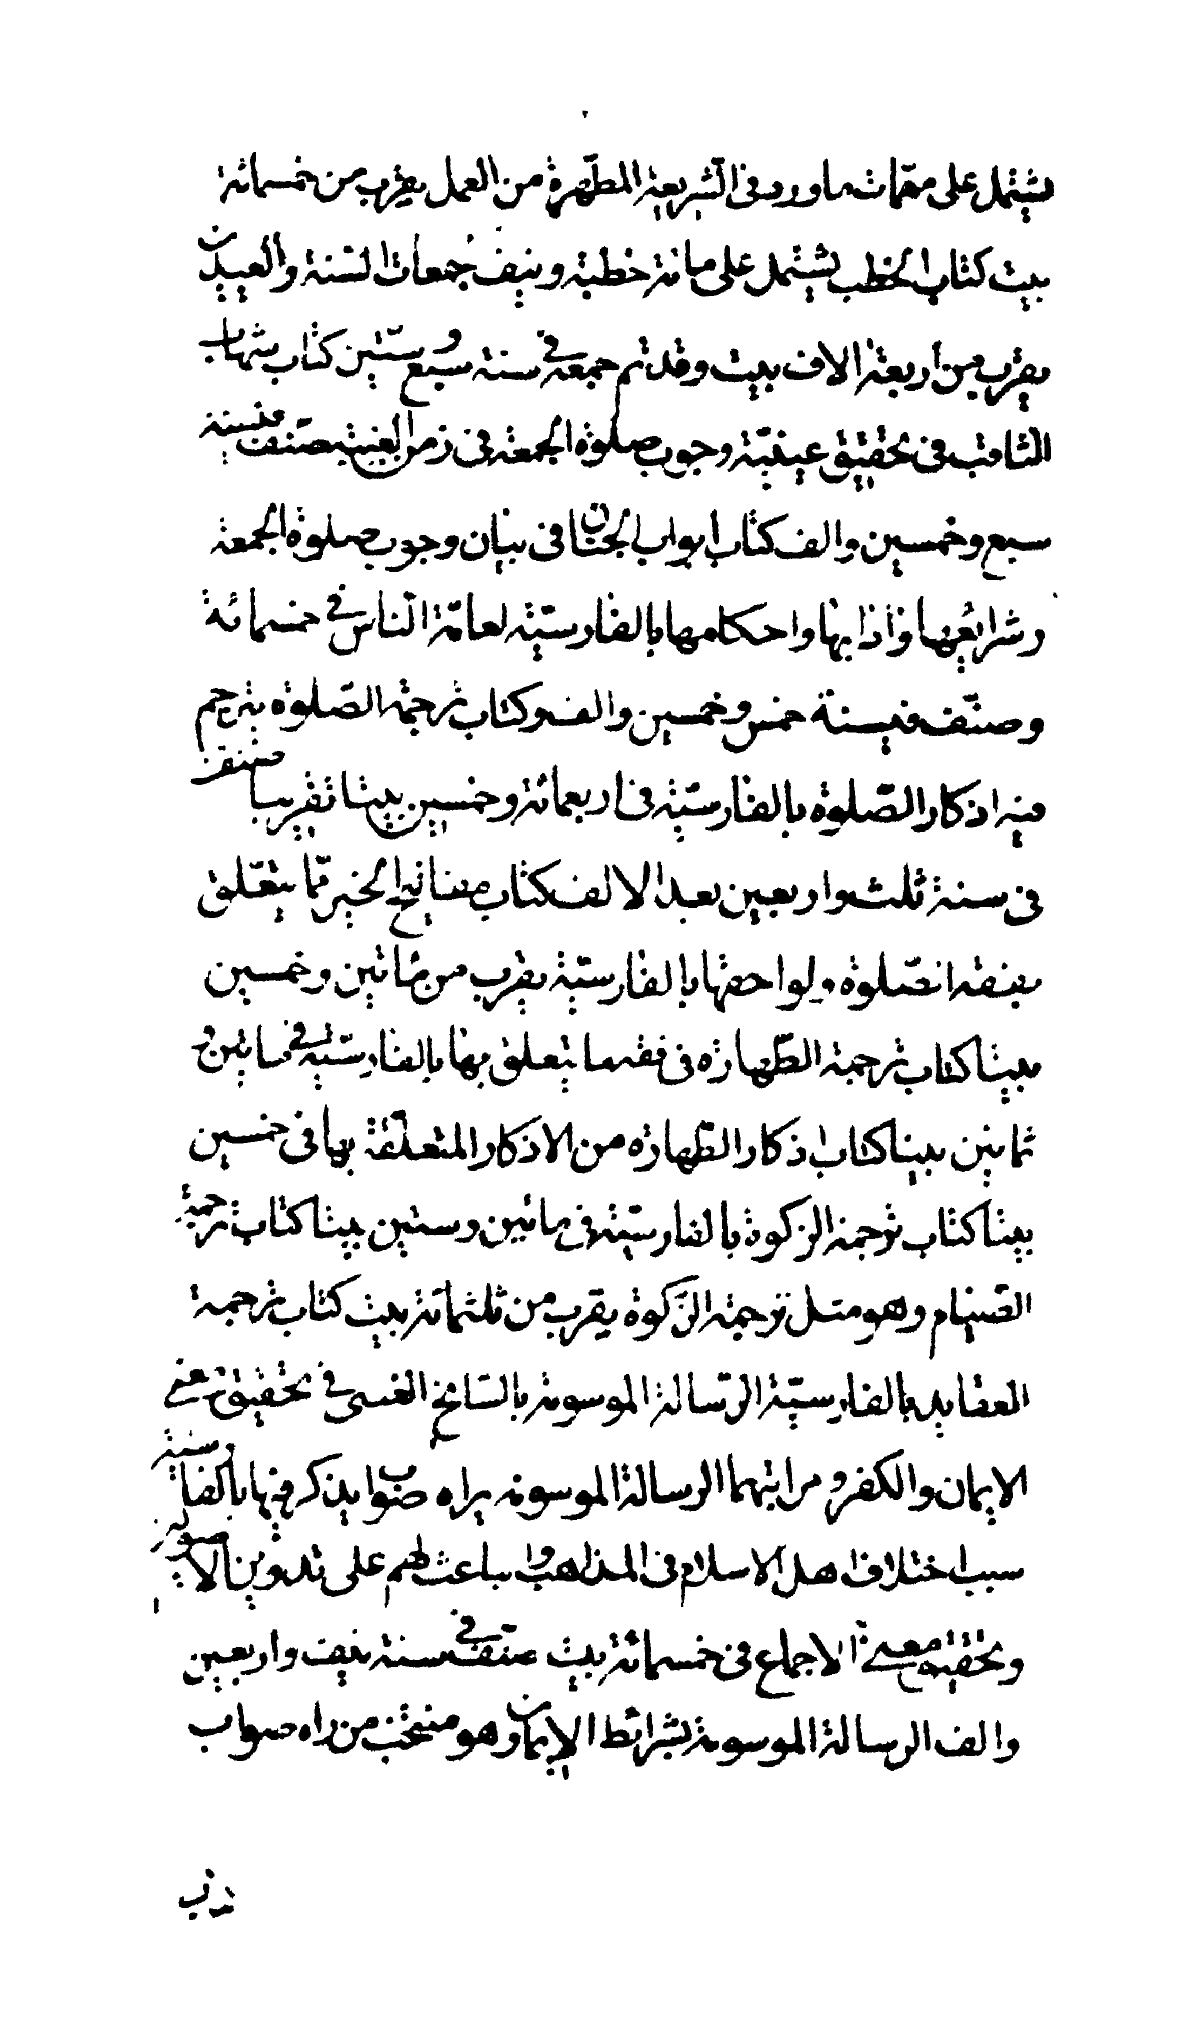 يشتمل على مهمات ما ورد فى الشريعة المطهرة من العمل يقرب من خمسمائة
بيت كتاب الخطب يشتمل على مائة خطبة ونيف جمعات السنة والعيدين
يقرب من اربعة الاف بيت وقد تم جمعه فى سنة سبع و ستين كتاب شهاب
الثاقب فى تحقيق عينيّة وجوب صلوة الجمعة فى زمن الغيبة صنف فى سنة
سبع وخمسين والف كتاب ابواب الجنان فى بيان وجوب صلوة الجمعة
وشرايعها وآدابها واحكامها بالفارسيّة لعامّة الناس فى خمسمائة
وصنّف فى سنة خمس وخمسين والف وكتاب ترجمة الصّلوة يترجم
فيه اذكار الصّلوة بالفارسيّة فى اربعمائة وخمسين بيتا تقريبا صنف
فى سنة ثلث واربعين بعد الالف كتاب مفاتيح الخير ممّا يتعّلق
بفقه الصّلوة ولواحقها بالفارسيّة يقرب من مائتين وخمسين
بيتا كتاب ترجمة الطّهارة فى فقه ما يتعلق بها بالفارسيّة فى مائتين و
ثمانين بيتا كتاب اذكار الطّهارة من الاذكار المتعلّقة بها فى خمسين
بيتا كتاب ترجمة الزكوة بالفارسيّة فى مائتين وستين بيتا كتاب ترجمة
الصّيام وهو مثل ترجمة الزّكوة يقرب من ثلثمائة بيت كتاب ترجمة
العقايد بالفارسيّة الرّسالة الموسومة بالسّانح الغيبى فى تحقيق معنى
الايمان والكفر و مراتبهما الرسالة الموسومة براه صواب يذكر فيها بالفارسية
سبب اختلاف اهل الاسلام فى المذاهب والباعث لهم على تدوين الاصولين
وتحقيق معنى الاجماع فى خمسمائة بيت صنّف فى سنة نيف واربعين
والف الرسالة الموسومة بشرائط الايمان وهو منتخب من راه صواب